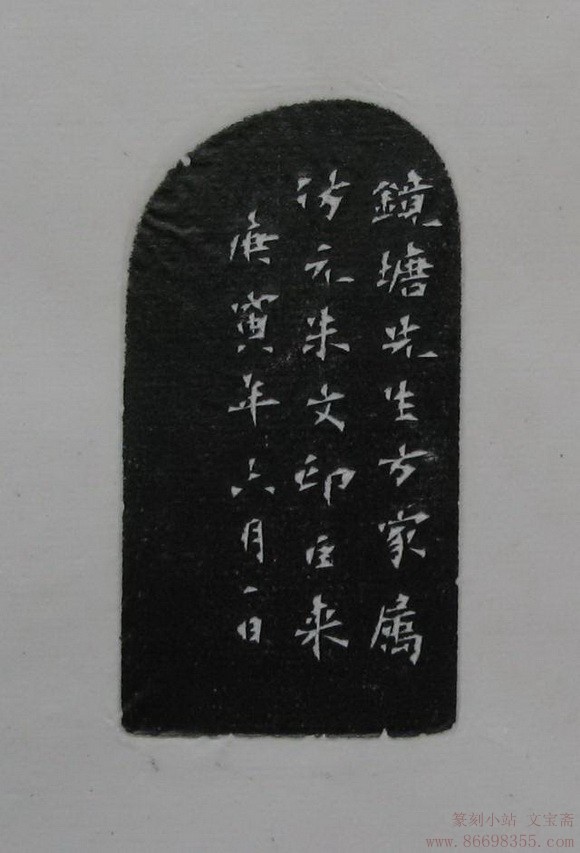 鏡塘先生方家属
仿元朱文印巨来
庚寅年六月一日
篆刻小站 文宝斋
www.86698355.com